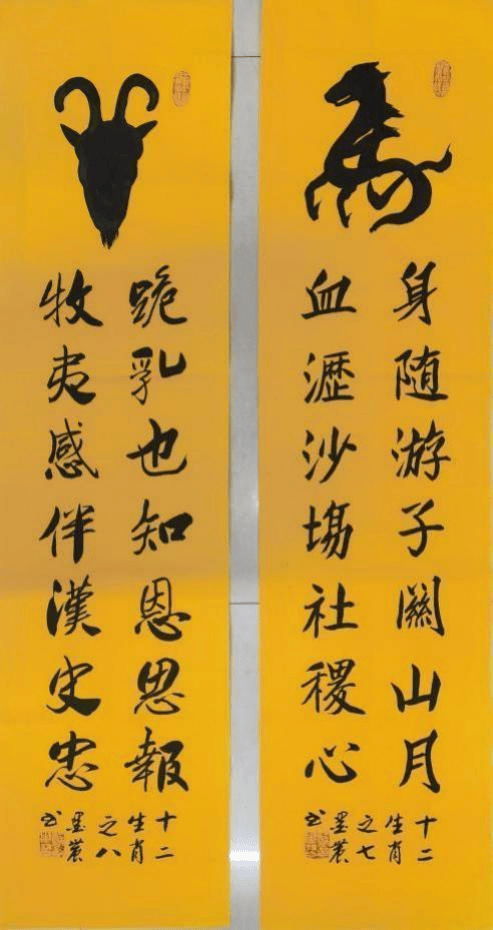 身随游子關山月
血瀝沙塲社稷心
十二
生肖
之七
墨農
书
跪乳也知恩思報
牧夷感伴漢史忠
十二
生肖
之八
墨農
书